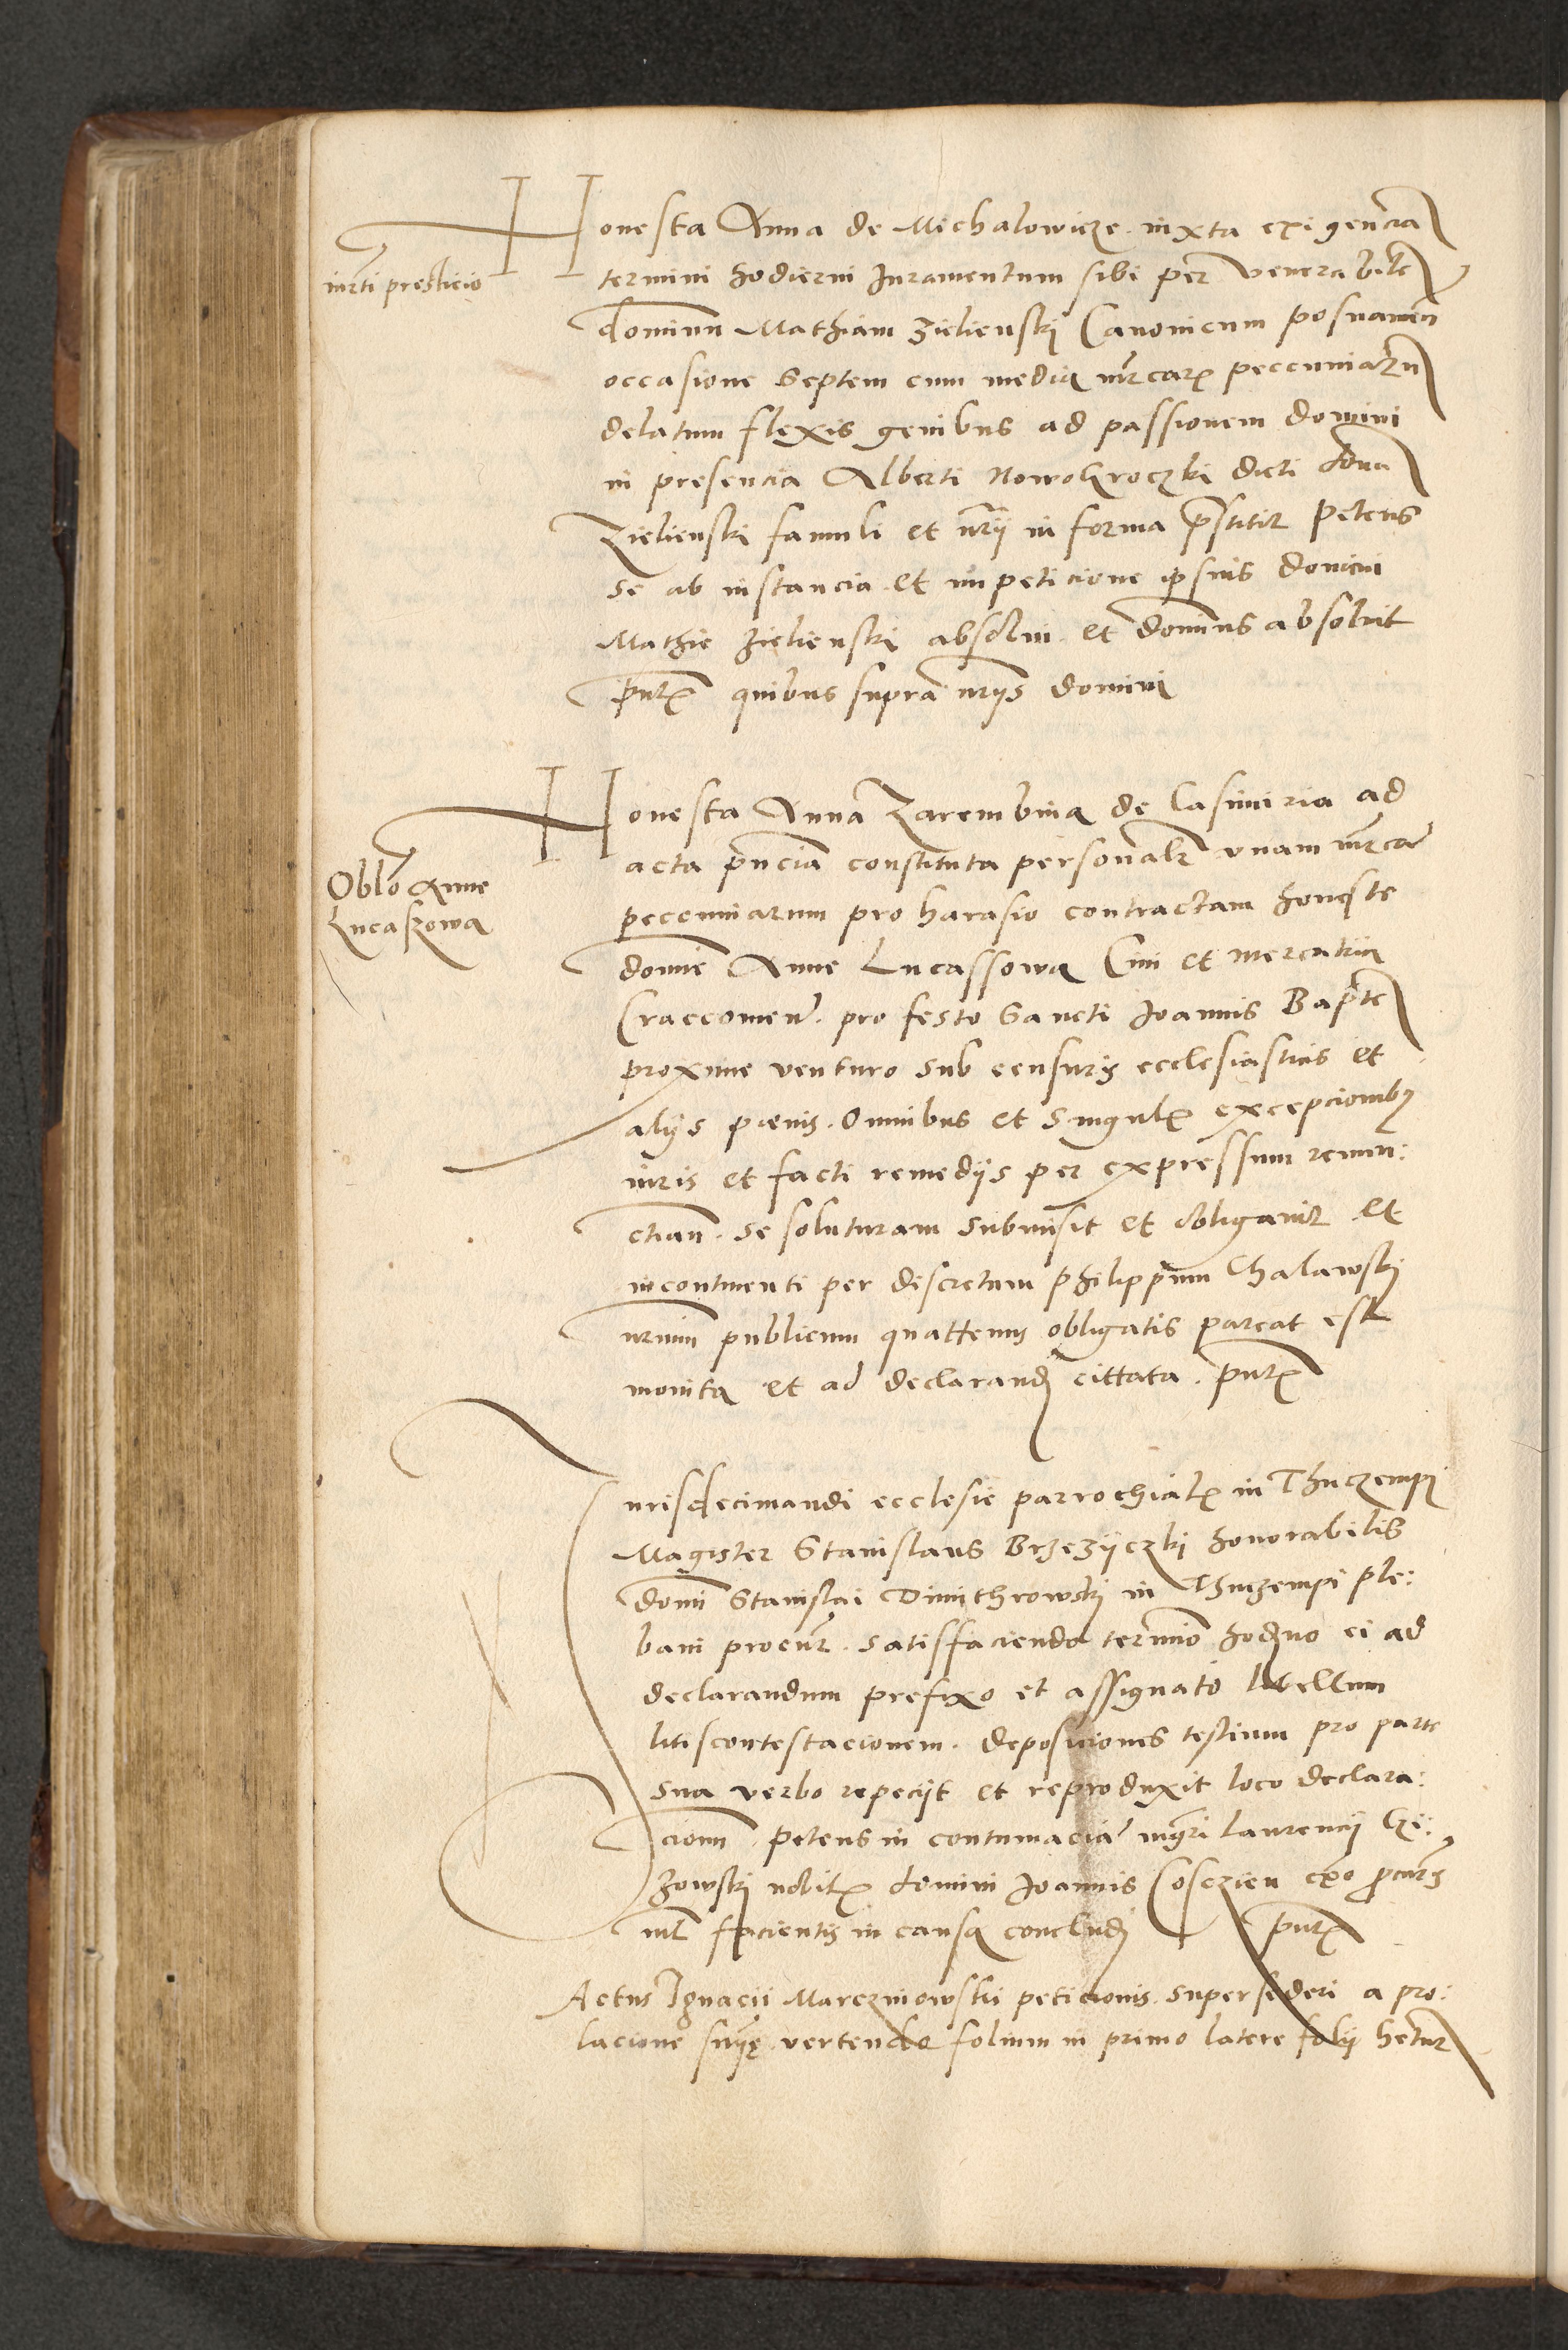 Honesta Anna de Michalowicze iuxta exigencia
iurti presticio
termini hodierni Iuramentum sibi per venerabile
dominu Mathiam Zielienski Canonicum posnanien
occasione Septem cum media mrcar peccuniaru
delatum flexis genibus ad passionem domini
in presencia Alberti dicti dom
Zielienski famuli et nrii in forma pstitit petens
se ab instancia et impeticione ipsius domini
Mathie Zielienski absolui et dominus absoluit
pntr quibus supra nrijs domini
Honesta Anna Zarembina de Casimiria ad
Oblo Anne
Lucaszowa
acta pncia constituta personalr vnam mrca
peccuniarum pro harasio contractam honeste
domie Anne Lucassowa Ciui et mercatrici
Craccouien pro festo Sancti Joannis Bapte
proxime venturo sub censuris ecclesiasticis et
alijs penis Omnibus et singulr excepcionibus
iuris et facti remedijs per expressum renun:
ctian se soluturam submisit et obligauit et
incontinenti per discretum Philippum Chalawski
nrium publicum quattenus obligatis pareat est
monita et ad declarand cittata pntr
Iuris decimandi ecclesie parrochialr in Thuczempi
Magister Stanislaus Brzeziczki honorabilis
domi Stanislai Dimithrowski in Thuczempi ple:
bani procur satisfaciendo termio hodno ei ad
declarandum prefixo et assignato libellum
litiscontestacionem deposiciones testium pro parte
sua verbo repeciit et reproduxit loco declara:
cionu petens in contumacia mgri Laurencij Czi:
zowski nobilr domini Joannis Cosczien exo pcuris
nil facientis in causa concludi pntr
Actus Ignacii Marczniowski peticionis supersederi a pro:
lacione sniie vertendo folium in primo latere folij hetur